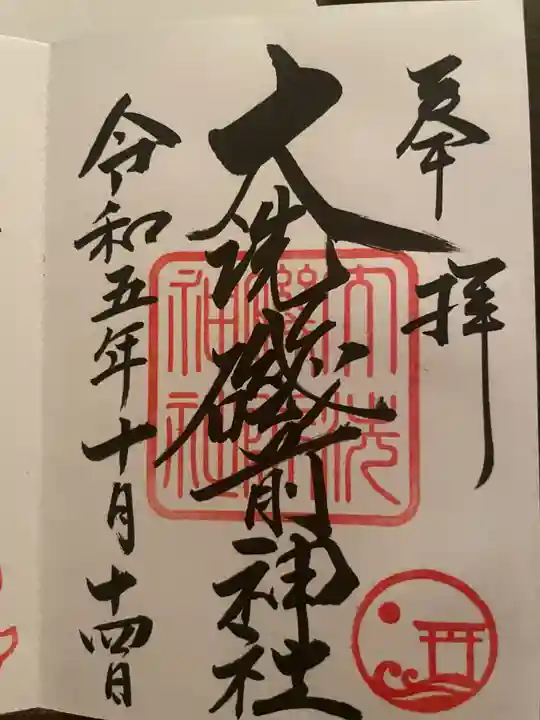 奉拝
大洗磯前神社
大洗
磯前
神社
令和五年十月十四日